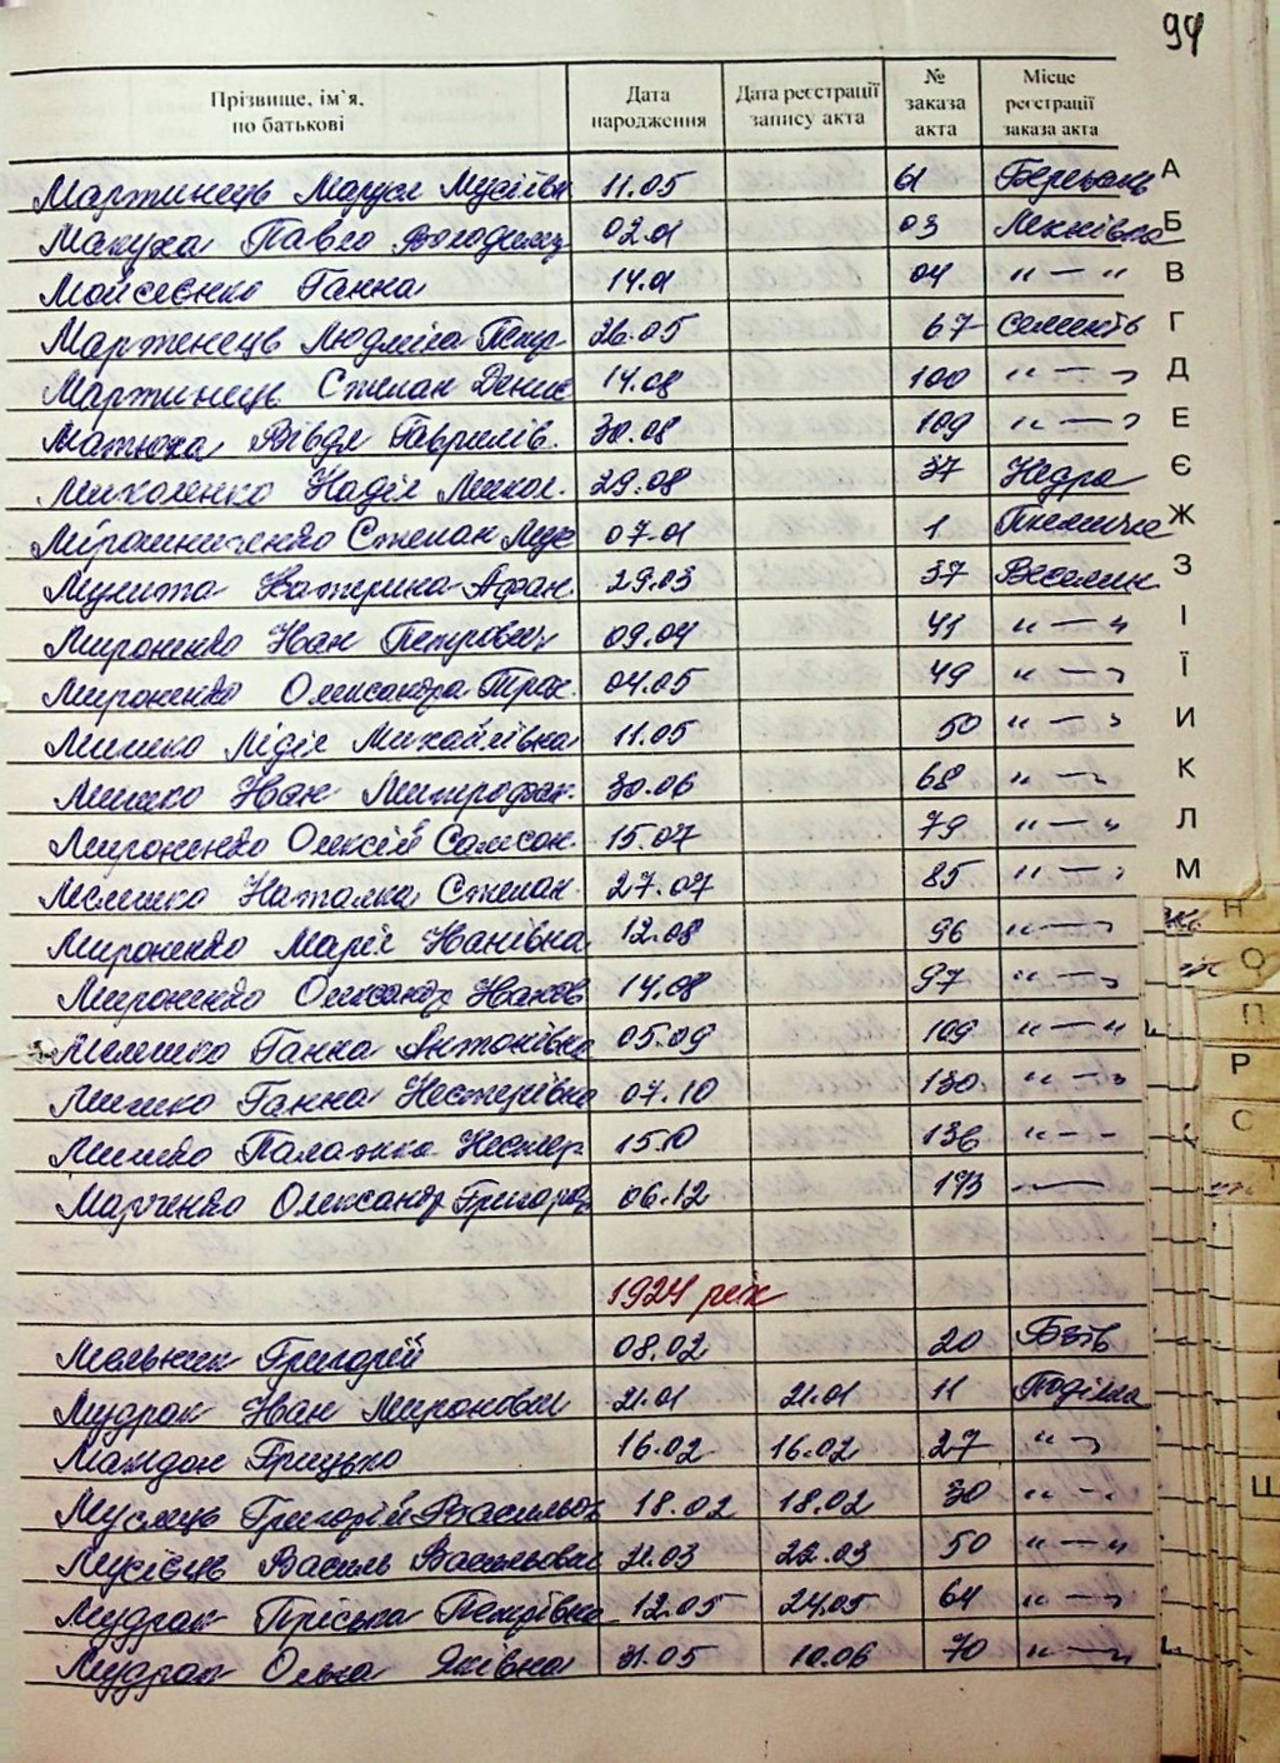 94
Прізвище, ім`я, по батькові Дата народження Дата реєстрації запису акта № заказа акта Місце реєстрації заказа акта
Мартинець Маруся Мусіївн 11.05 61 Березань А
Макуха Павло Володимир 02.01 03 Лехнівка Б
Мойсеєнко Ганна 14.01 04 " — " В
Мартенець Людміла Петр 26.05 67 Г
Мартинець Степан Денис 14.08 100 " — " Д
Матюха Вівдя Гаврилів. 30.08 109 " — " Е
Миколенко Надія Микол. 29.08 37 Недра Є
Мірошниченко Степан 07.01 1 Ж
Мулита Катерина Афан. 29.03 37 З
Мироненко Іван Петрович 09.04 41 " — " І
Мироненко Олександра Трох. 04.05 49 " — " Ї
Мишко Лідія Михайлівна 11.05 50 " — " И
Мишко Іван Митрофан. 30.06 68 " — " К
Мироненко Олексій Самсон. 15.07 79 " — " Л
Мелешко Наталка Степан. 27.07 85 " — " М
Мироненко Марія Іванівна 12.08 96 " — " Н
Мироненко Олександр Іванов 14.08 97 " — " О
Мелешко Ганна Антонівна 05.09 109 " — " П
Мишко Ганна Нестерівна 07.10 130 " — " Р
Мишко Палажка Нестер. 15.10 136 " — " С
Марченко Олександр Григоров 06.12 173 — Т
1924 рік
Мельник Григорій 08.02 20
Мудрак Іван Миронович 21.01 21.01 11 Поділля
Грицько 16.02 16.02 27 " — "
Мусієць Григорій Васильов 18.02 18.02 30 " — " Ш
Мусієць Василь Васильович 21.03 22.03 50 " — "
Мудрак Пріська Петрівна 12.05 24.05 64 " — "
Мудрак Ольга Яківна 31.05 10.06 70 " — "